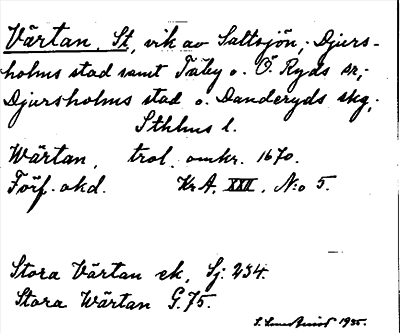 Värtan, St, vik av Saltsjön; Djurs-
holms stad samt Täby o. Ö. Ryds sr;
Djursholms stad o. Danderyds skg;
Sthlms l.
Wärtan, trol. omkr. 1670.
Förf. okd. Kr A. XXII. N:o 5.
Stora Värtan ek. Sj: 234.
Stora Wärtan G. 75.
1935.